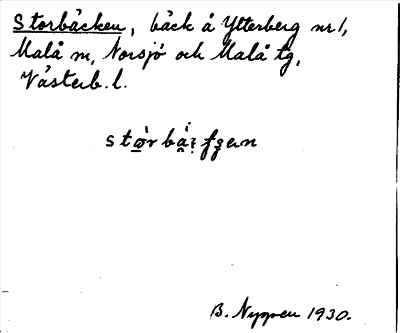 Storbäcken, bäck å Ytterberg nr 1,
Malå sn, Norsjö och Malå tg,
Västerb. l.
B. Nygren 1930.